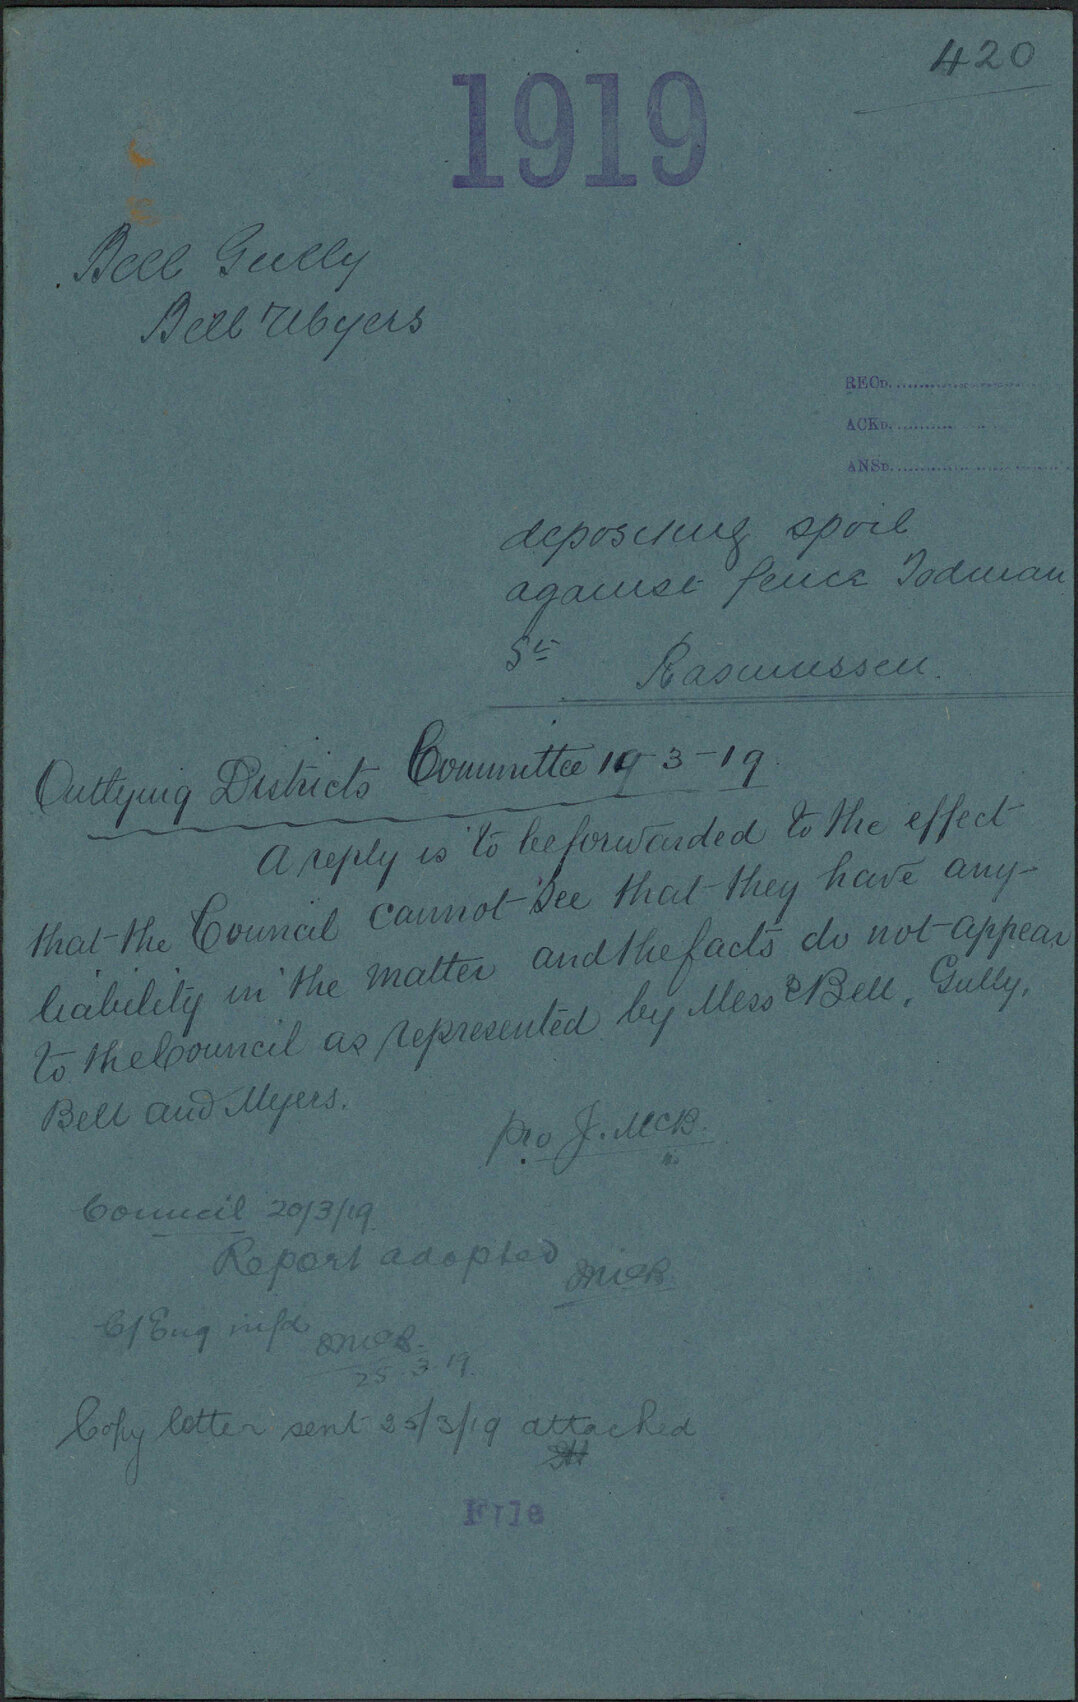 420
1919
Bell Gully
Bell & Myers
RECD.
ACKD.
ANSD.
depositing spoil
against fence Todman
St Rasmussen.
Outlying Districts Committee 19-3-19
A reply is to be forwarded to the effect
that the Council cannot see that they have any
liability in the matter and the facts do not appear
to the Council as represented by Messrs Bell, Gully,
Bell and Myers.
pro J. McB.
Council 20/3/19
Report adopted
C/Eng infd
25-3-19
Copy letter sent 25/3/19 attached
File